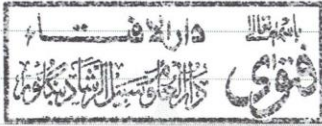 باسمہ تعالیٰ
دارالافتاء
فتویٰ
دارالعلوم سبیل الرشاد بنگلور